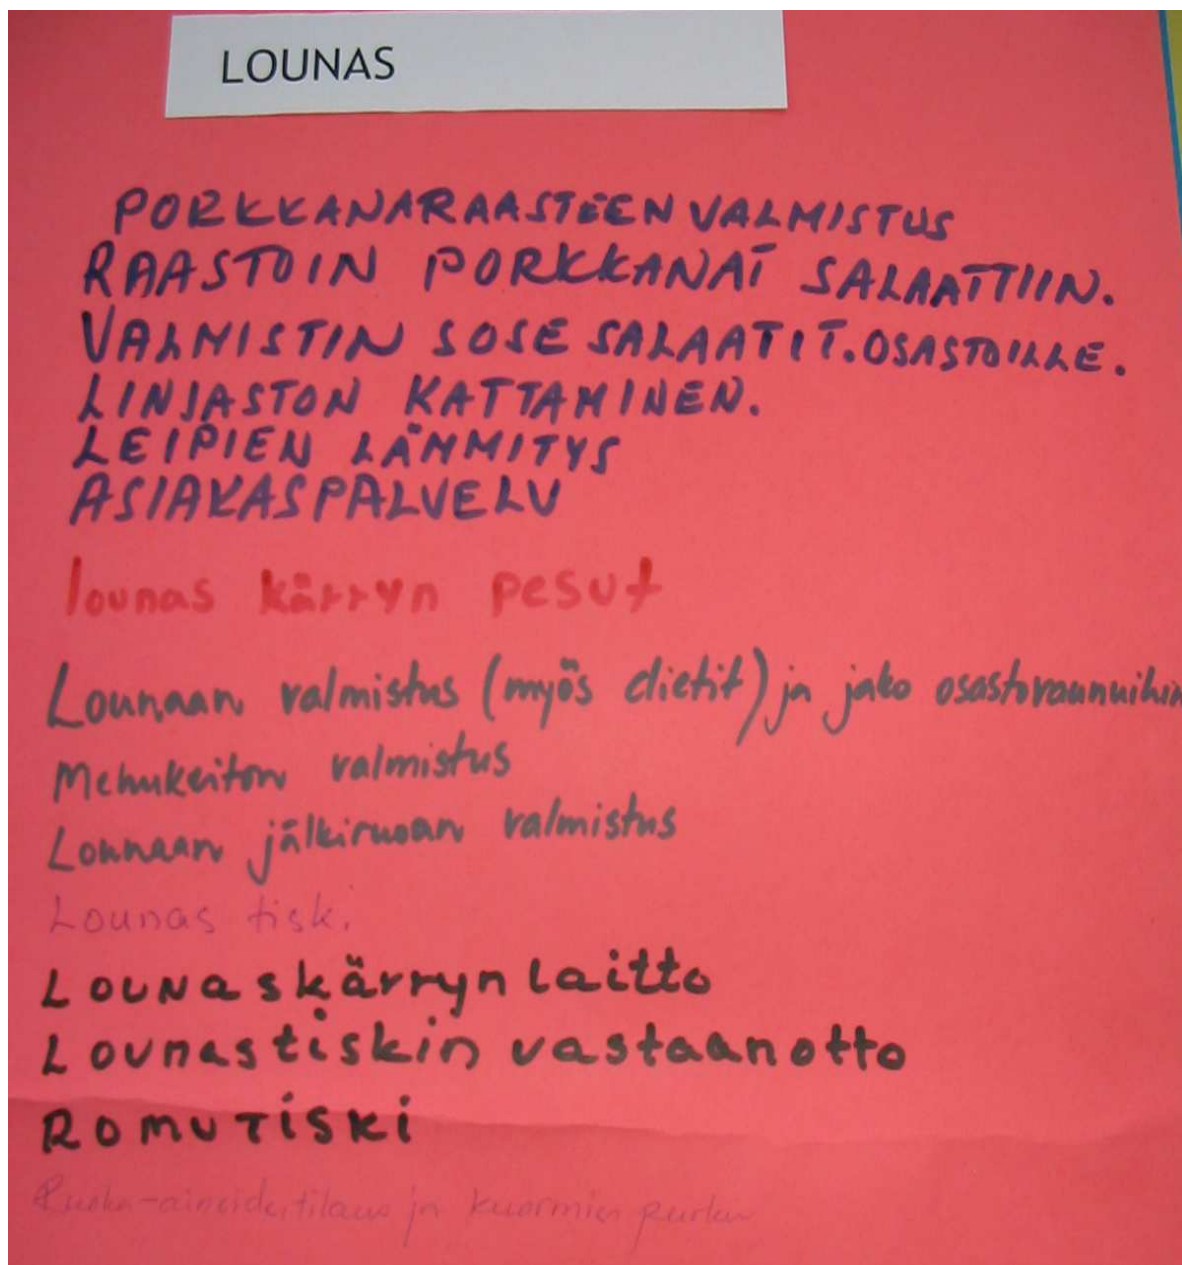 LOUNAS
PORKKANARAASTEEN VALMISTUS
RAASTOIN PORKKANAT SALAATTIIN.
VALMISTIN SOSE SALAATIT.OSASTOILLE.
LINJASTON KATTAMINEN.
LEIPIEN LÄMMITYS
ASIAKASPALVELU
lounas kärryn pesut
Lounaan valmistus (myös dietit) ja jako osastovaunuihin
Mehukeiton valmistus
Lounaan jälkiruoan valmistus
Lounas tisk.
Lounaskärryn laitto
Lounastiskin vastaanotto
Romutiski
Ruoka-aineide,tilaus ja kuormien purku